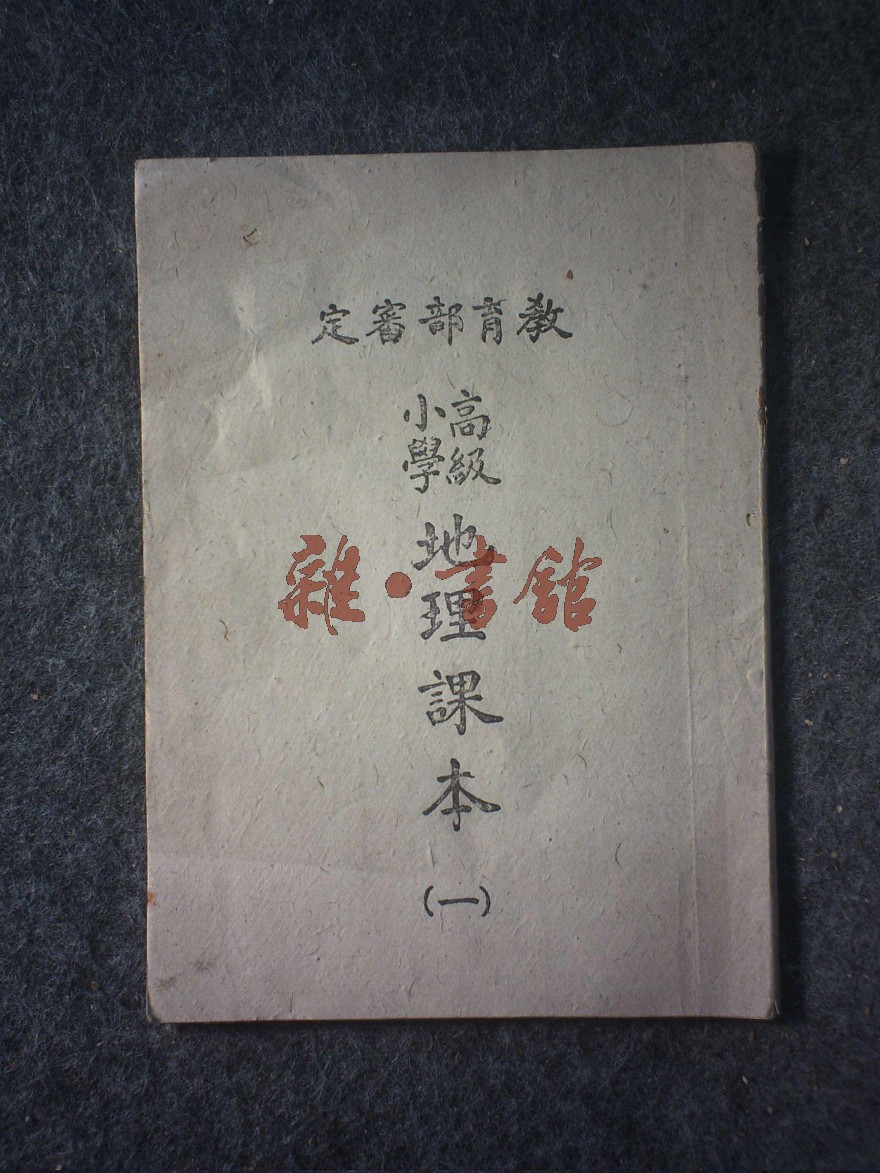 教育部審定
高級
小學
地理課本
(一)
雜·書舘